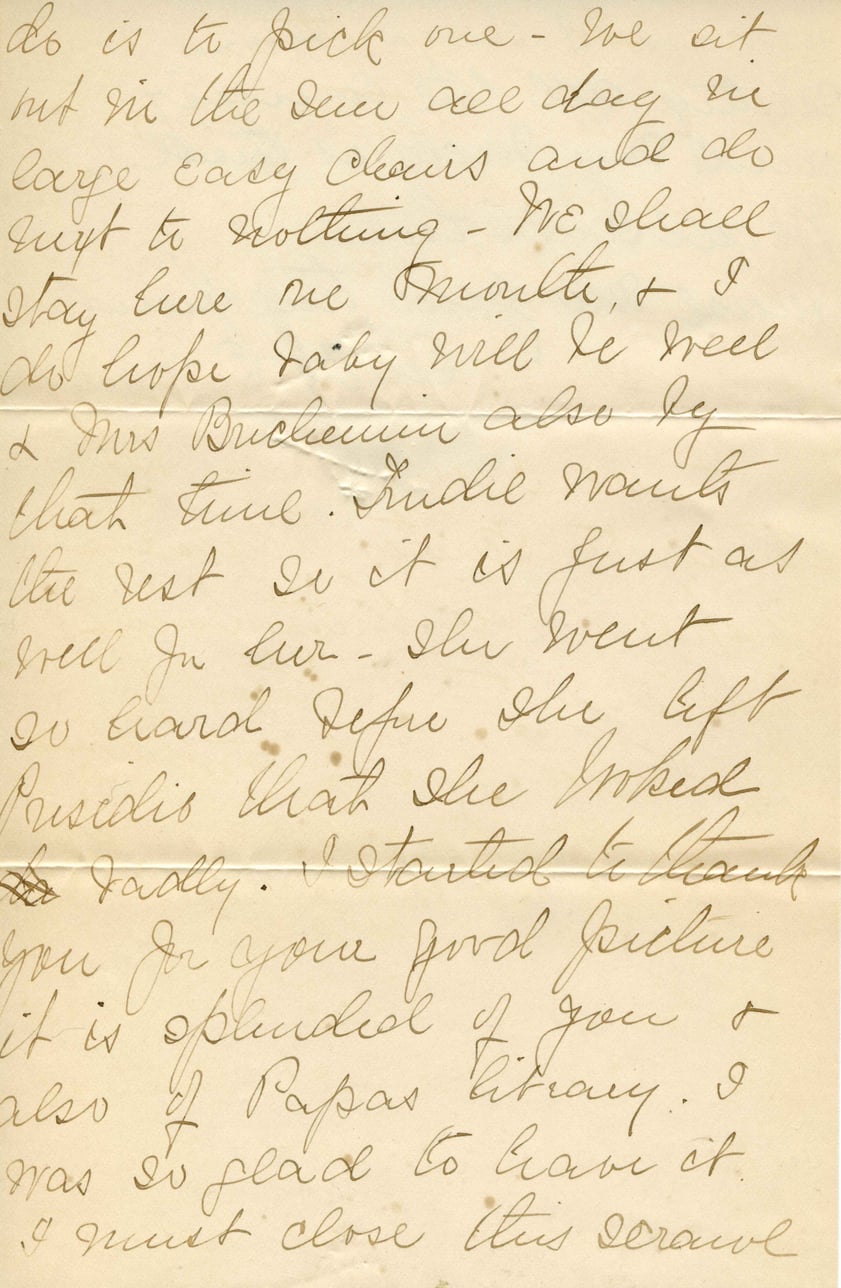 do is to pick one - We sit
out in the sun all day in
large easy chairs and do
next to nothing - We shall
stay here one month, & I
do hope baby will be well
& Mrs also by
that time. wants
the rest so it is just as
well for her - She went
so hard before she left
Presidio that she looked
badly. I started to thank
you for your good picture
it is splendid of you &
also of Papas library. I
was so glad to have it.
I must close this scrawl